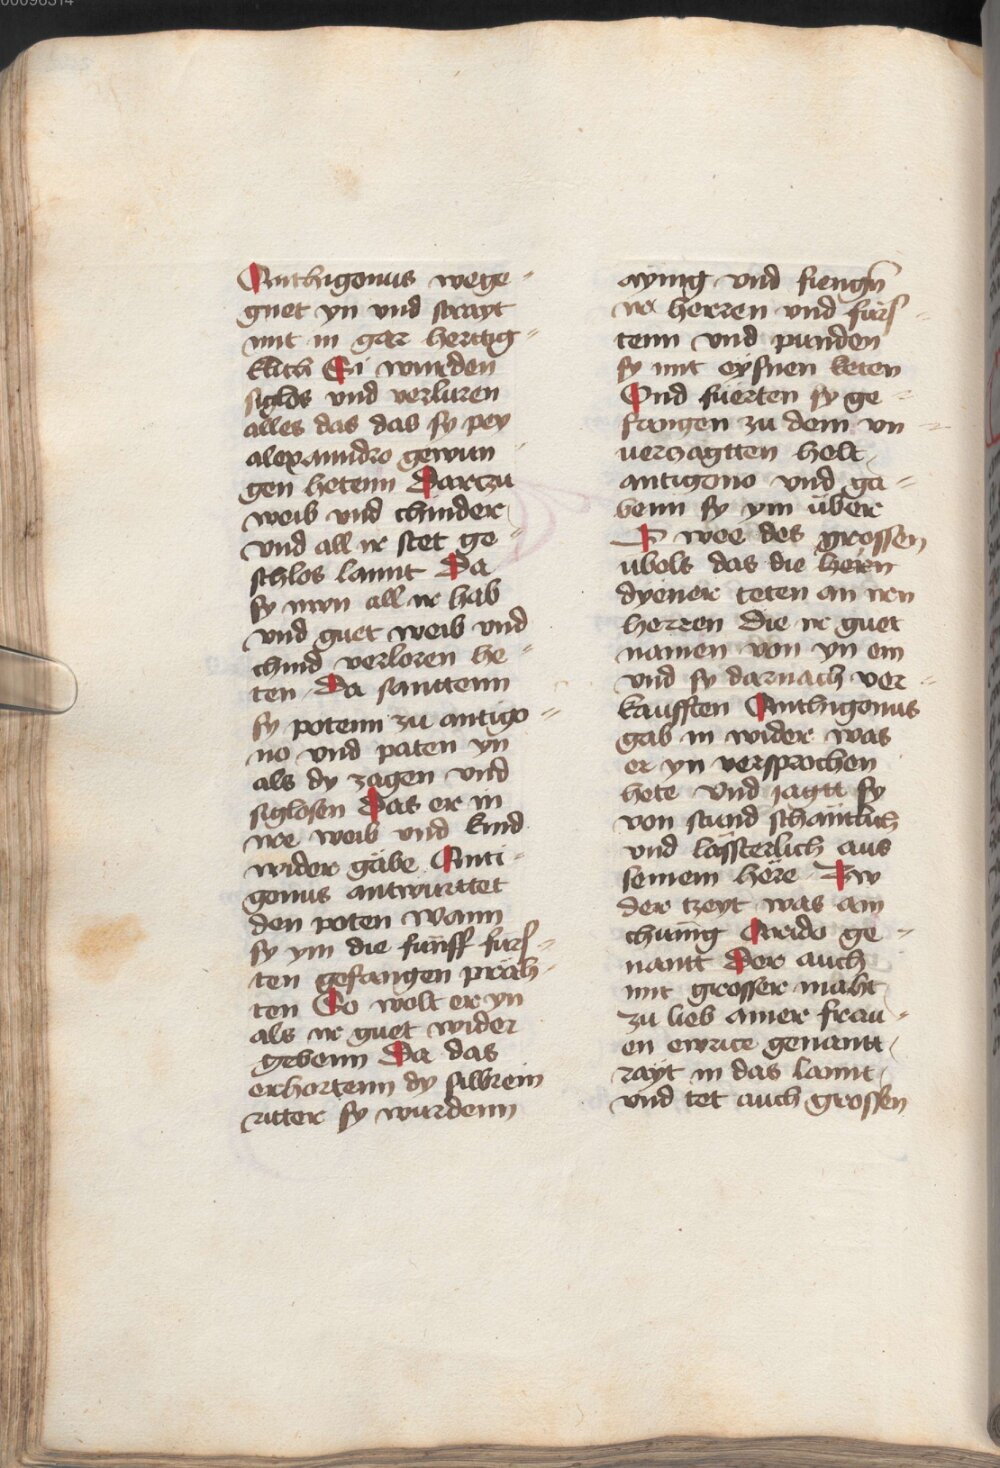 Anthigonus wege-
gnet yn vnd strayt
mit in gar hertig-
klich Si wurden
siglos vnd verluren
alles das das sy pey
alexanndro gewun
gen hetenn Darczu
weib vnd chinder
vnd all ir stet ge-
schlos lannt Da
sy nun all ir hab
vnd guet weib vnd
chind verloren he-
ten Da santtenn
sy potenn zu antigo-
no vnd paten yn
als dy zagen vnd
siglosen Das er in
ire weib vnd kind
wider gäbe Anti-
gonus antwurttet
den poten wann
sy ym die fünff fürs-
ten gefangen präch-
ten So wolt er yn
als ir guet wider
gebenn Da das
erhortenn dy silbrein
ritter sy wurdenn
aynig vnd fiengn
ir herren vnd fürs-
tenn vnd punden
sy mit eysnen keten
Vnd fuerten sy ge-
fangen zu dem vn-
uerzagtten helt
antigono vnd ga-
benn sy ym über
O wee des grossen
übels das die herrn
dyener teten an irn
herren Die ir guet
namen von yn ein
vnd sy darnach ver-
kaufften Anthigonus
gab in wider was
er yn versprochen
hete vnd jagtt sy
von stund schäntlich
vnd lässterlich aus
seinem here Zw
der tzeyt was ain
chünig Arido ge-
nantt Der auch
mit grosser macht
zu lieb ainer frau-
en ewrice genantt
rayt in das lannt
vnd tet auch grossen